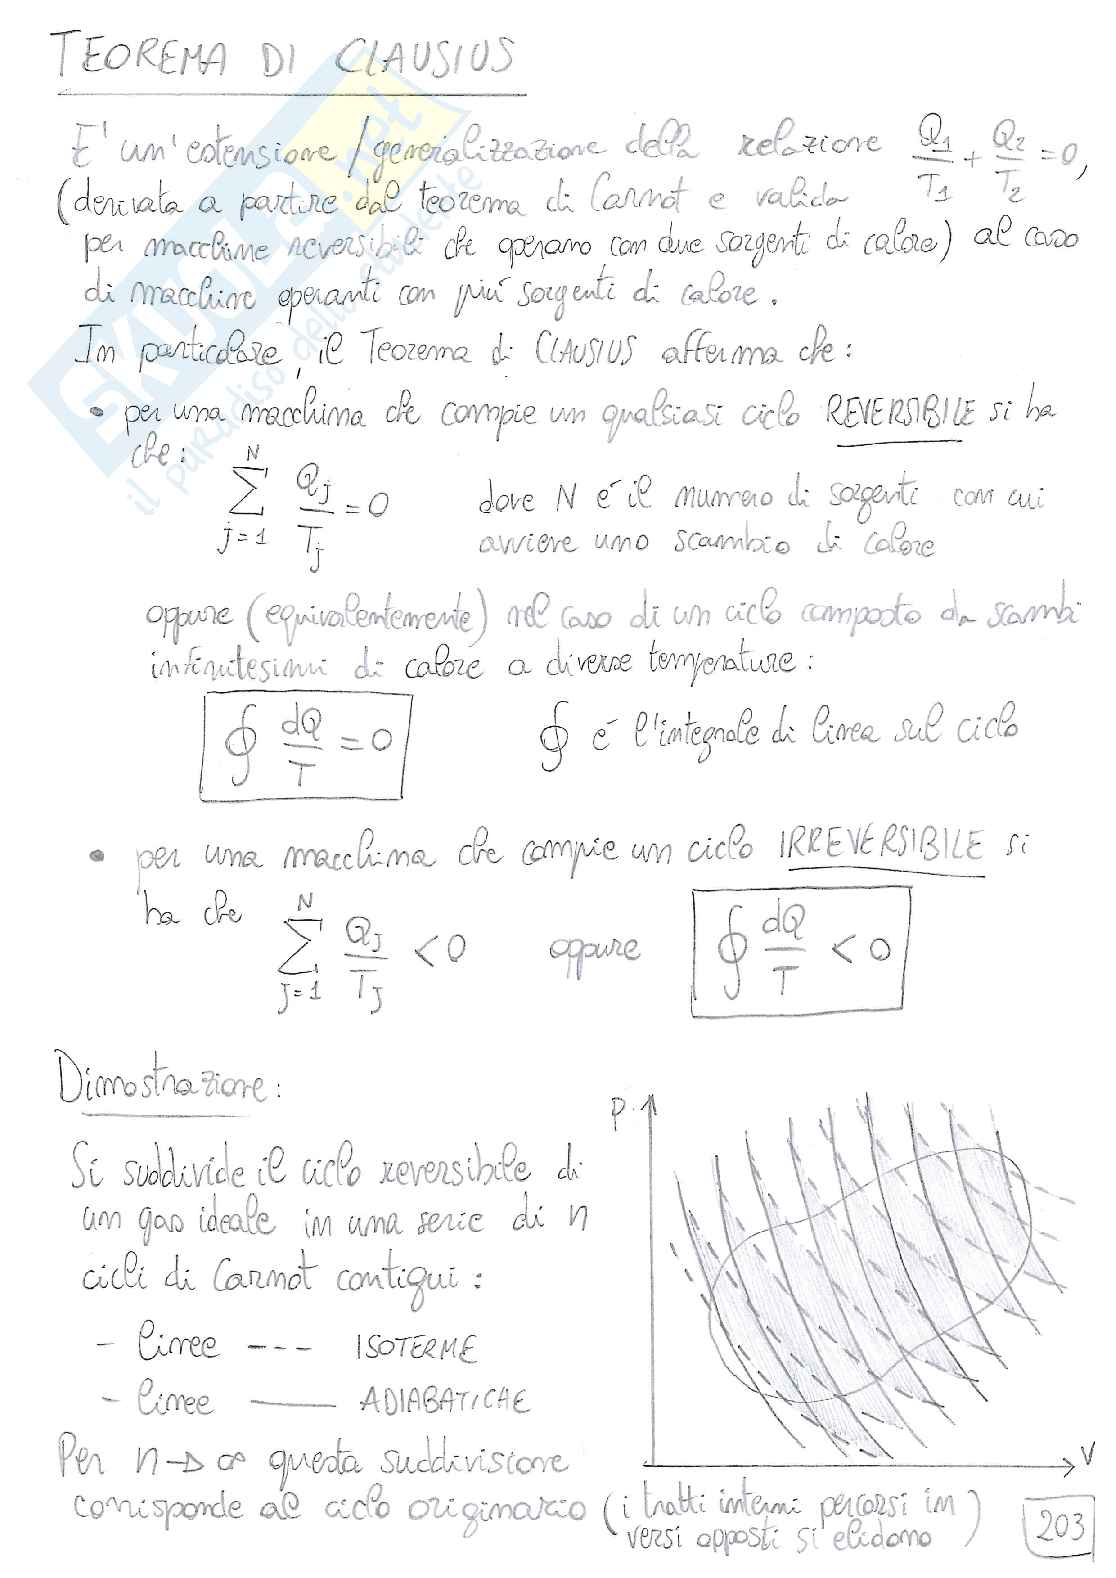 TEOREMA DI CLAUSIUS
E' un'estensione/generalizzazione della relazione Q1/T1 + Q2/T2 = 0,
(derivata a partire dal teorema di Carnot e valida
per macchine reversibili che operano con due sorgenti di calore) al caso
di macchine operanti con più sorgenti di calore.
In particolare, il Teorema di CLAUSIUS afferma che:
• per una macchina che compie un qualsiasi ciclo REVERSIBILE si ha
che:
N ∑ j=1 Qj/Tj = 0 dove N é il numero di sorgenti con cui
avviene uno scambio di calore
oppure (equivalentemente) nel caso di un ciclo composto da scambi
infinitesimi di calore a diverse temperature:
∮ dQ/T = 0 ∮ é l'integrale di linea sul ciclo
• per una macchina che compie un ciclo IRREVERSIBILE si
ha che N ∑ J=1 QJ/TJ < 0 oppure ∮ dQ/T < 0
Dimostrazione:
Si suddivide il ciclo reversibile di
un gas ideale in una serie di n
cicli di Carnot contigui:
- linee --- ISOTERME
- linee ─── ADIABATICHE
Per n→∞ questa suddivisione
corrisponde al ciclo originario (i tratti interni percorsi in
versi opposti si elidono)
P
V
203
SKUOLA.net
il paradiso dello studente